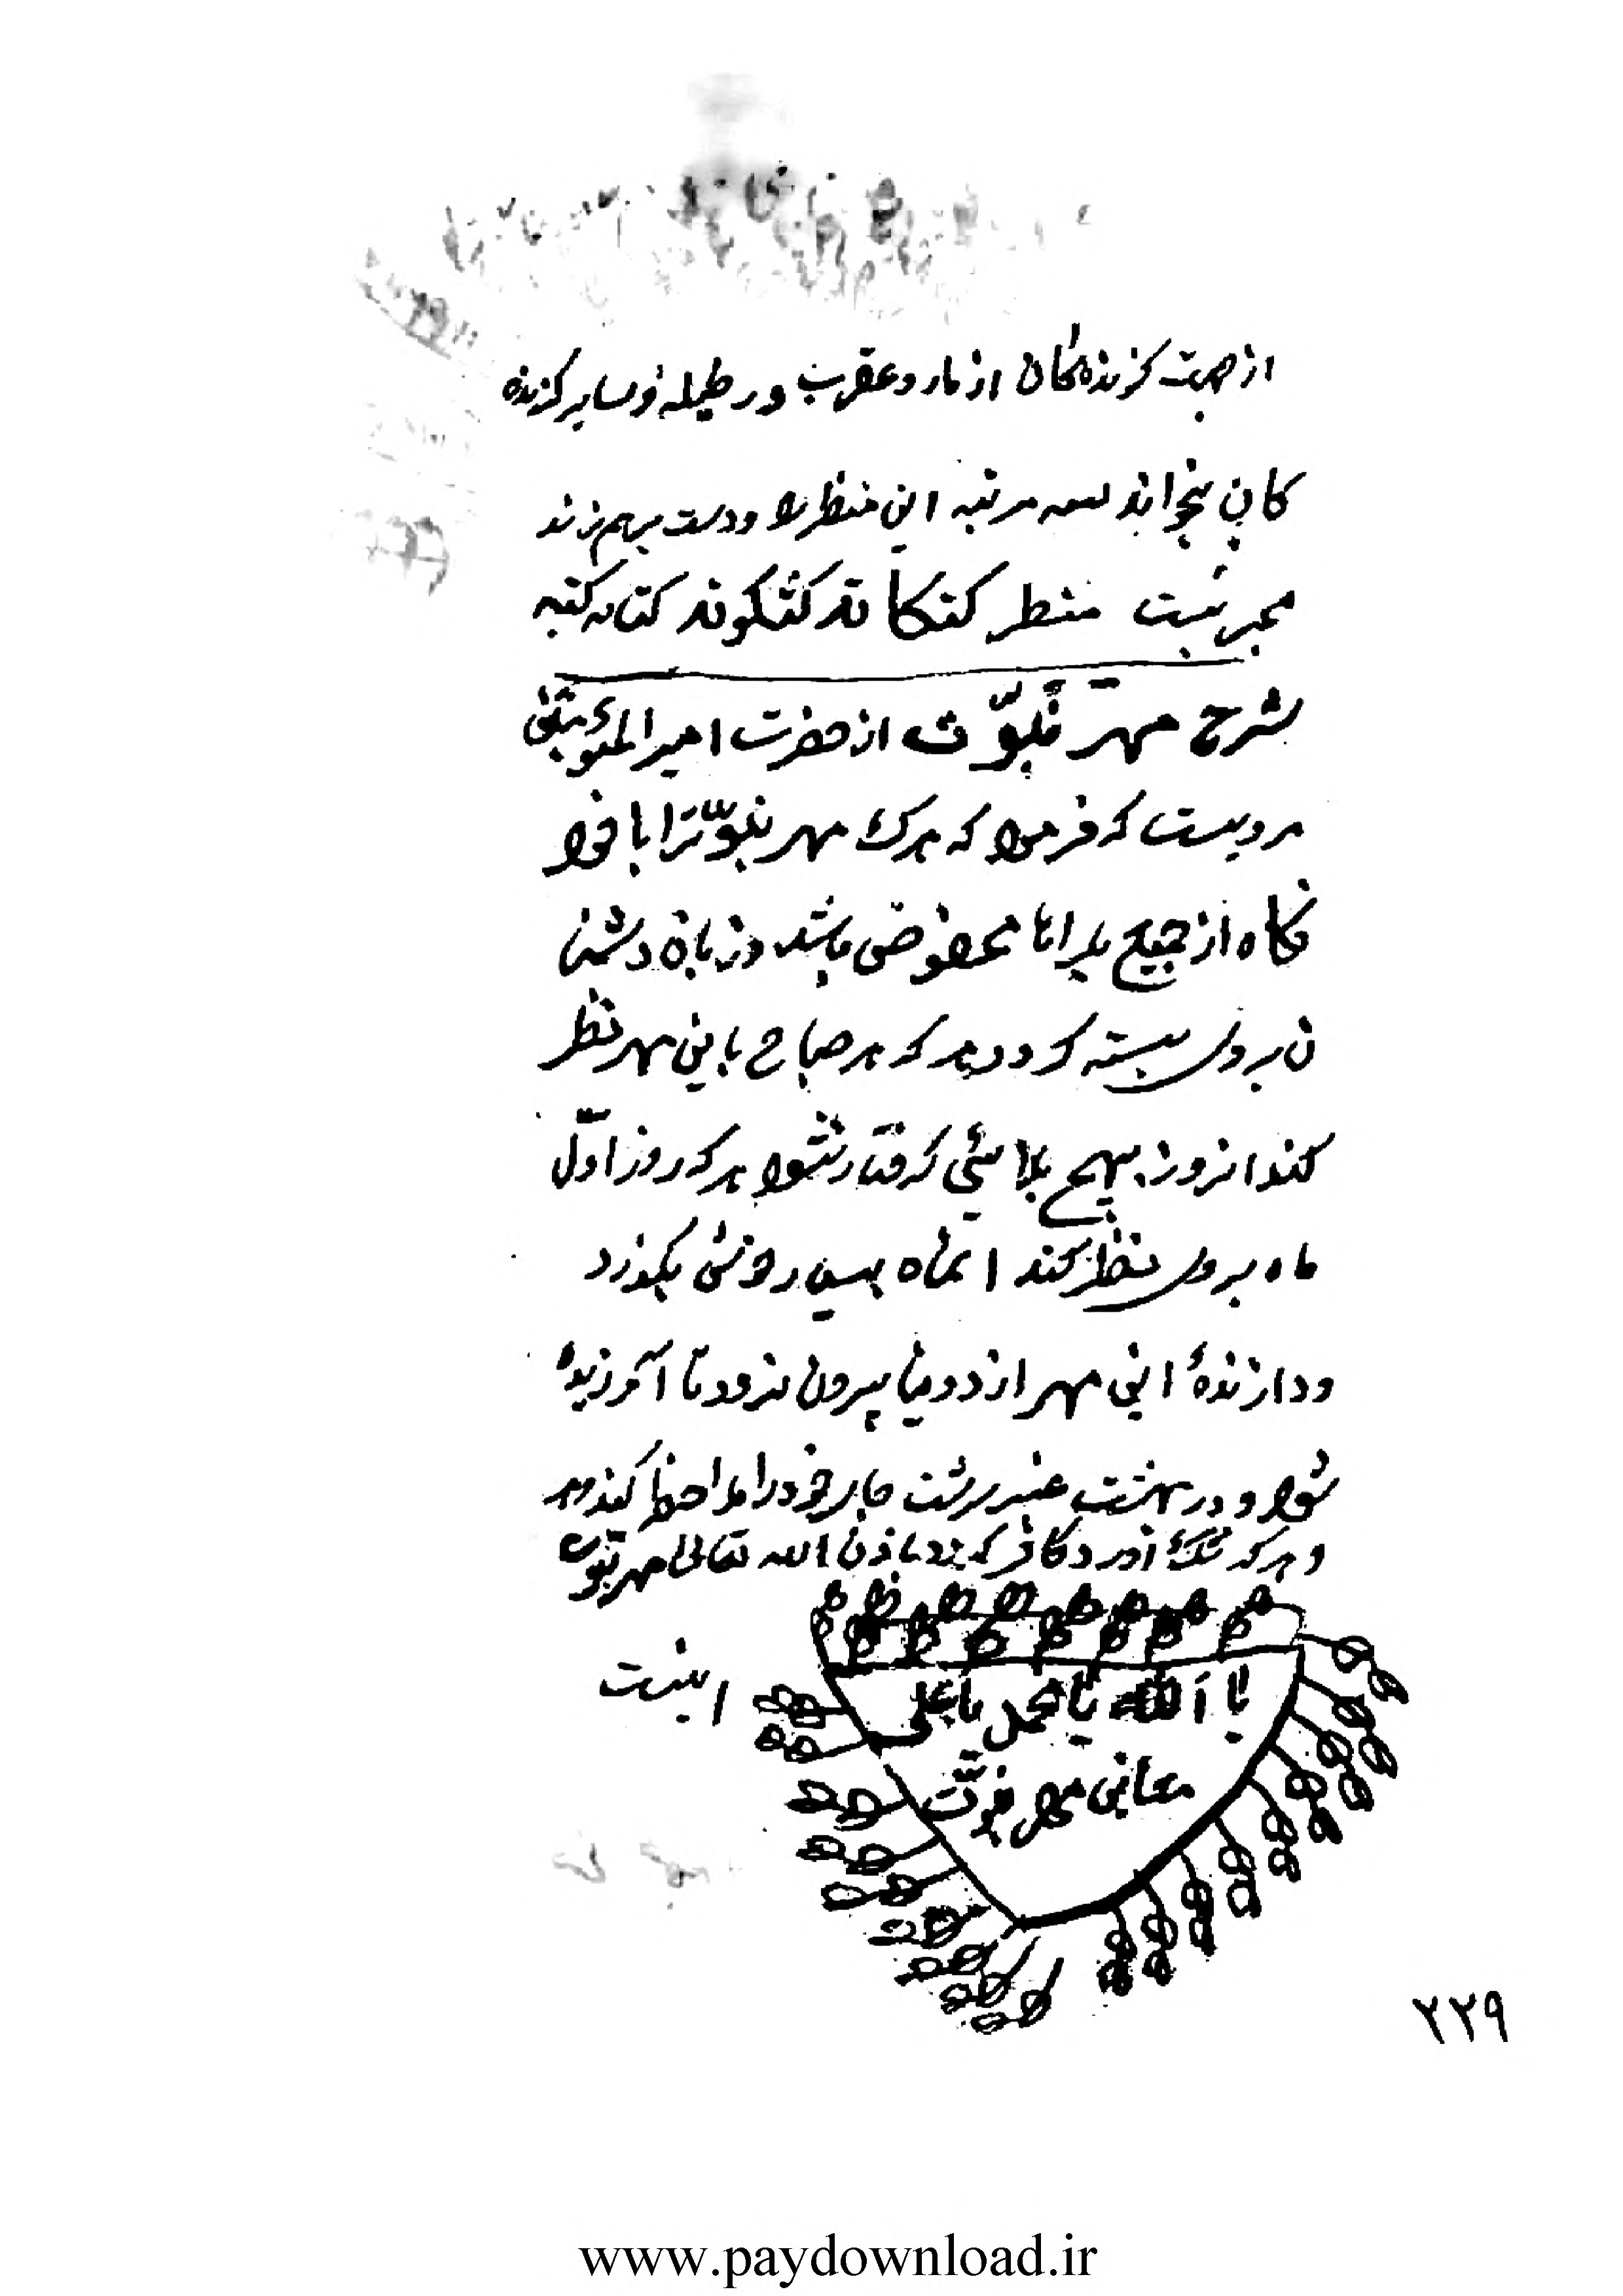 از جهت گزنده گان از مار و عقرب و رطیله و سایر گزنده
گان بخواند سه مرتبه این منظر را و دست برهم زند
مجربست منطر کتکا تد کثکوند کتابه کتبه
شرح مهر نبوّت از حضرت امیرالمؤمنین
مرویست که فرمود که هرکه مهر نبوّترا با خود
نکاه از جمیع بلاانا محفوض باشد و زبان دشمنا
ن بروی بسته کردد و هر که هر صباح باین مهر نظر
کند انروز بهیچ بلائی کرفتار نشود هر که روز اوّل
ماه بروی نظر کند انماه بسیار خوش بکوزرد
و دارندهٔ این مهر از دونیا بیرون نرود تا آمرزیده
شود و در بهشت عنبر سرشت جای خود را ملاحظه کند
و هر که شک آورد کافر کردد باذن الله تعالی مهر نبوت
اینست
یا الله یا محمد یا علی
معانی مهر نبوّت
۲۲۹
www.paydownload.ir